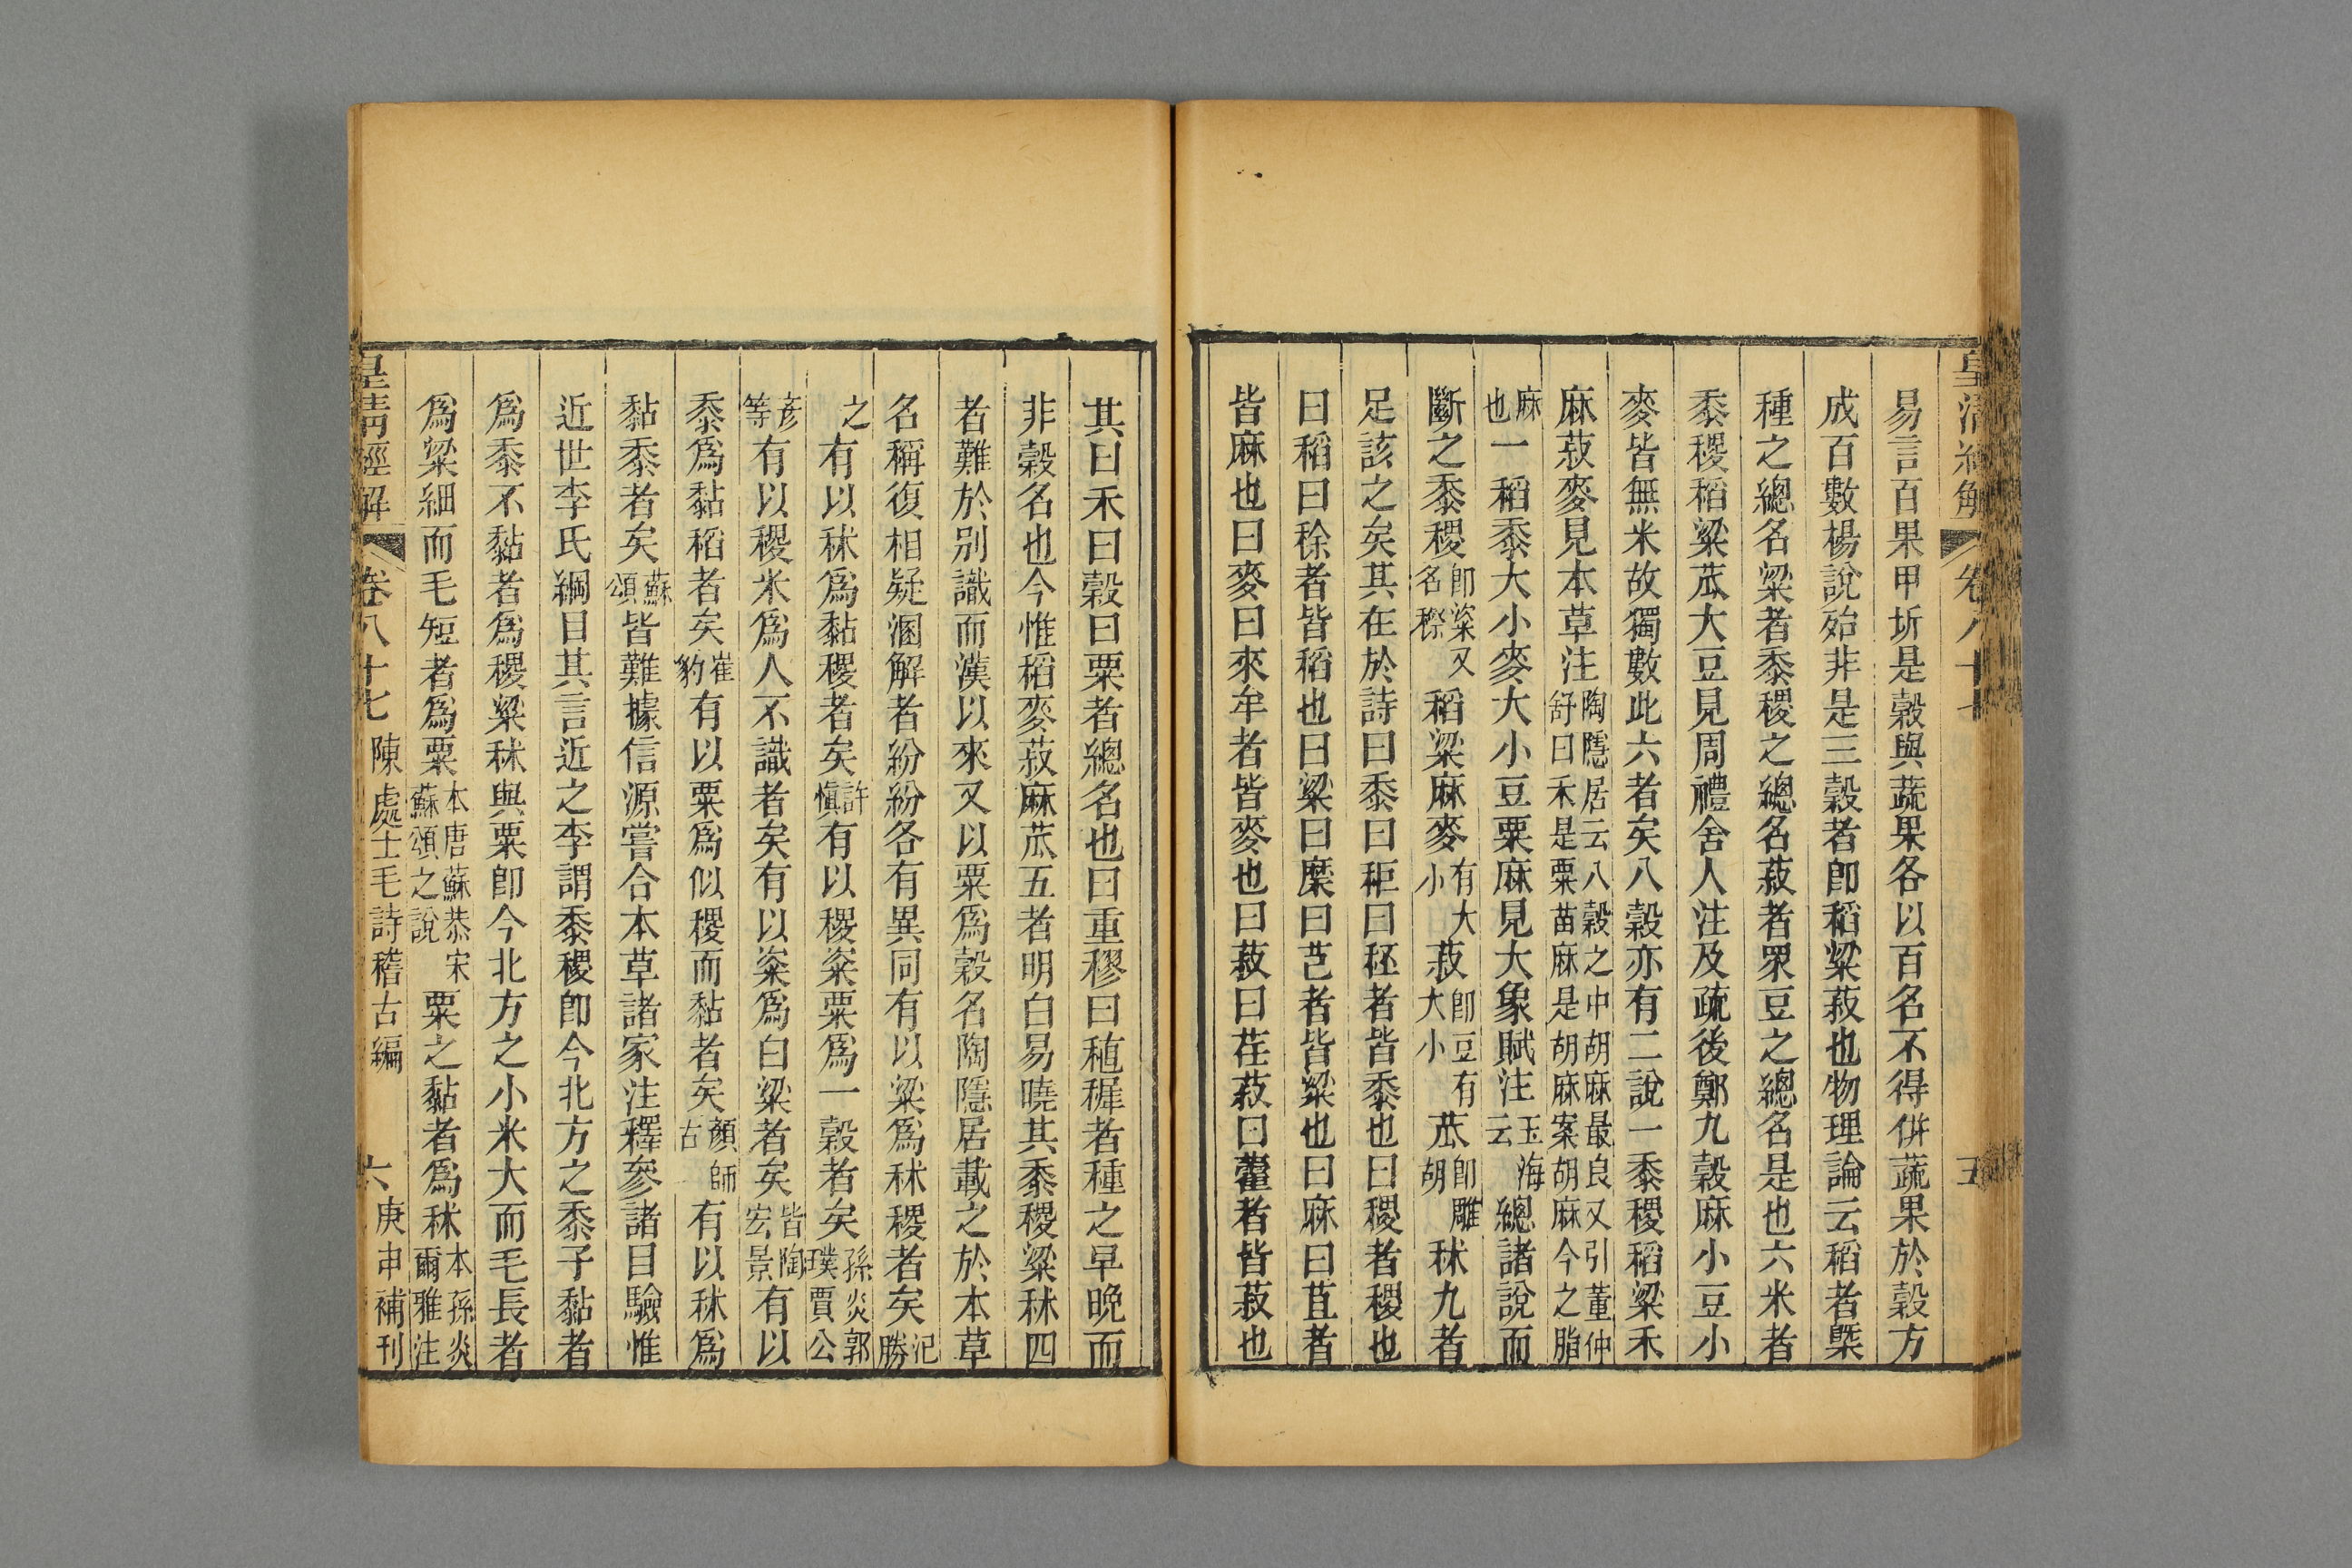 皇清經解 卷八十七 五
易言百果甲坼是穀與蔬果各以百名不得併蔬果於穀方
成百數楊說殆非是三穀者卽稻粱菽也物理論云稻者槩
種之總名粱者黍稷之總名菽者眾豆之總名是也六米者
黍稷稻粱苽大豆見周禮舍人注及疏後鄭九穀麻小豆小
麥皆無米故獨數此六者矣八穀亦有二說一黍稷稻粱禾
麻菽麥見本草注陶隱居云八穀之中胡麻最良又引董仲舒曰禾是粟苗麻是胡麻案胡麻今之脂
麻也一稻黍大小麥大小豆粟麻見大象賦注玉海云總諸說而
斷之黍稷卽粢又名穄稻粱麻麥有大小菽卽豆有大小苽卽雕胡秫九者
足該之矣其在於詩曰黍曰秬曰秠者皆黍也曰稷者稷也
曰稻曰稌者皆稻也曰粱曰穈曰芑者皆粱也曰麻曰苴者
皆麻也曰麥曰來牟者皆麥也曰菽曰荏菽曰藿者皆菽也
其曰禾曰穀曰粟者總名也曰重穋曰稙稺者種之早晚而
非穀名也今惟稻麥菽麻苽五者明白易曉其黍稷粱秫四
者難於別識而漢以來又以粟爲穀名陶隱居載之於本草
名稱復相疑溷解者紛紛各有異同有以粱爲秫稷者矣氾勝
之有以秫爲黏稷者矣許愼有以稷粢粟爲一穀者矣孫炎郭璞賈公
彥等有以稷米爲人不識者矣有以粢爲白粱者矣皆陶宏景有以
黍爲黏稻者矣崔豹有以粟爲似稷而黏者矣顏師古有以秫爲
黏黍者矣蘇頌皆難據信源嘗合本草諸家注釋參諸目驗惟
近世李氏綱目其言近之李謂黍稷卽今北方之黍子黏者
爲黍不黏者爲稷粱秫與粟卽今北方之小米大而毛長者
爲粱細而毛短者爲粟本唐蘇恭宋蘇頌之說粟之黏者爲秫本孫炎爾雅注
皇清經解 卷八十七 陳處士毛詩稽古編 六 庚申補刊